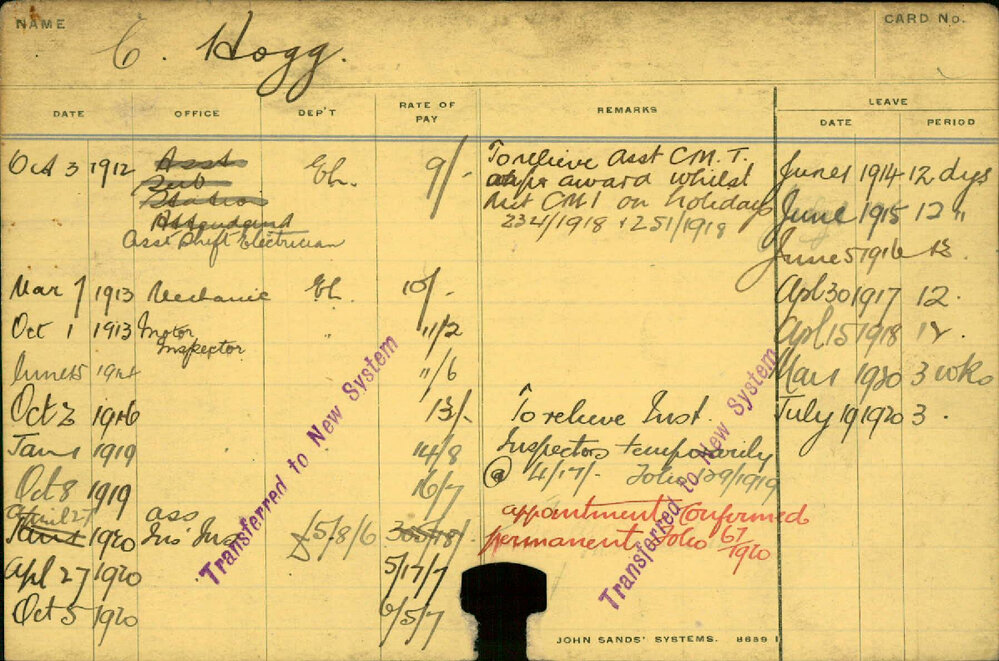 NAME
CARD No.
C. Hogg.
DATE OFFICE DEP'T RATE OF PAY REMARKS LEAVE
DATE PERIOD
Oct 3 1912 Asst El. 9/- To relieve Asst C.M.T. June 1 1914 12 dys
Sub award whilst
Station Asst CMT on holidays June 1915 12 "
Attendant 234/1918 + 251/1918
Asst Shift Electrician
June 5 1916 12.
Mar 7 1913 Mechanic El. 10/- Apl 30 1917 12.
Oct 1 1913 Motor Inspector " 11/2 Apl 15 1918 12.
June 15 1914 11/6 Mar 1 1920 3 wks
Oct 2 1916 13/- To relieve Inst. July 19 1920 3.
Jan 1 1919 14/8 Inspectors temporarily
@ 4/17/- Folio 129/1919
Oct 8 1919 16/7
April 27 ass appointment Confirmed
Jan 1 1920 Ins Inst £5/8/6 305/18/- permanent. Folio 67/1920
Apl 27 1920 5/17/7
Oct 5 1920 6/5/7
Transferred to New System
Transferred to New System
JOHN SANDS' SYSTEMS. 8689